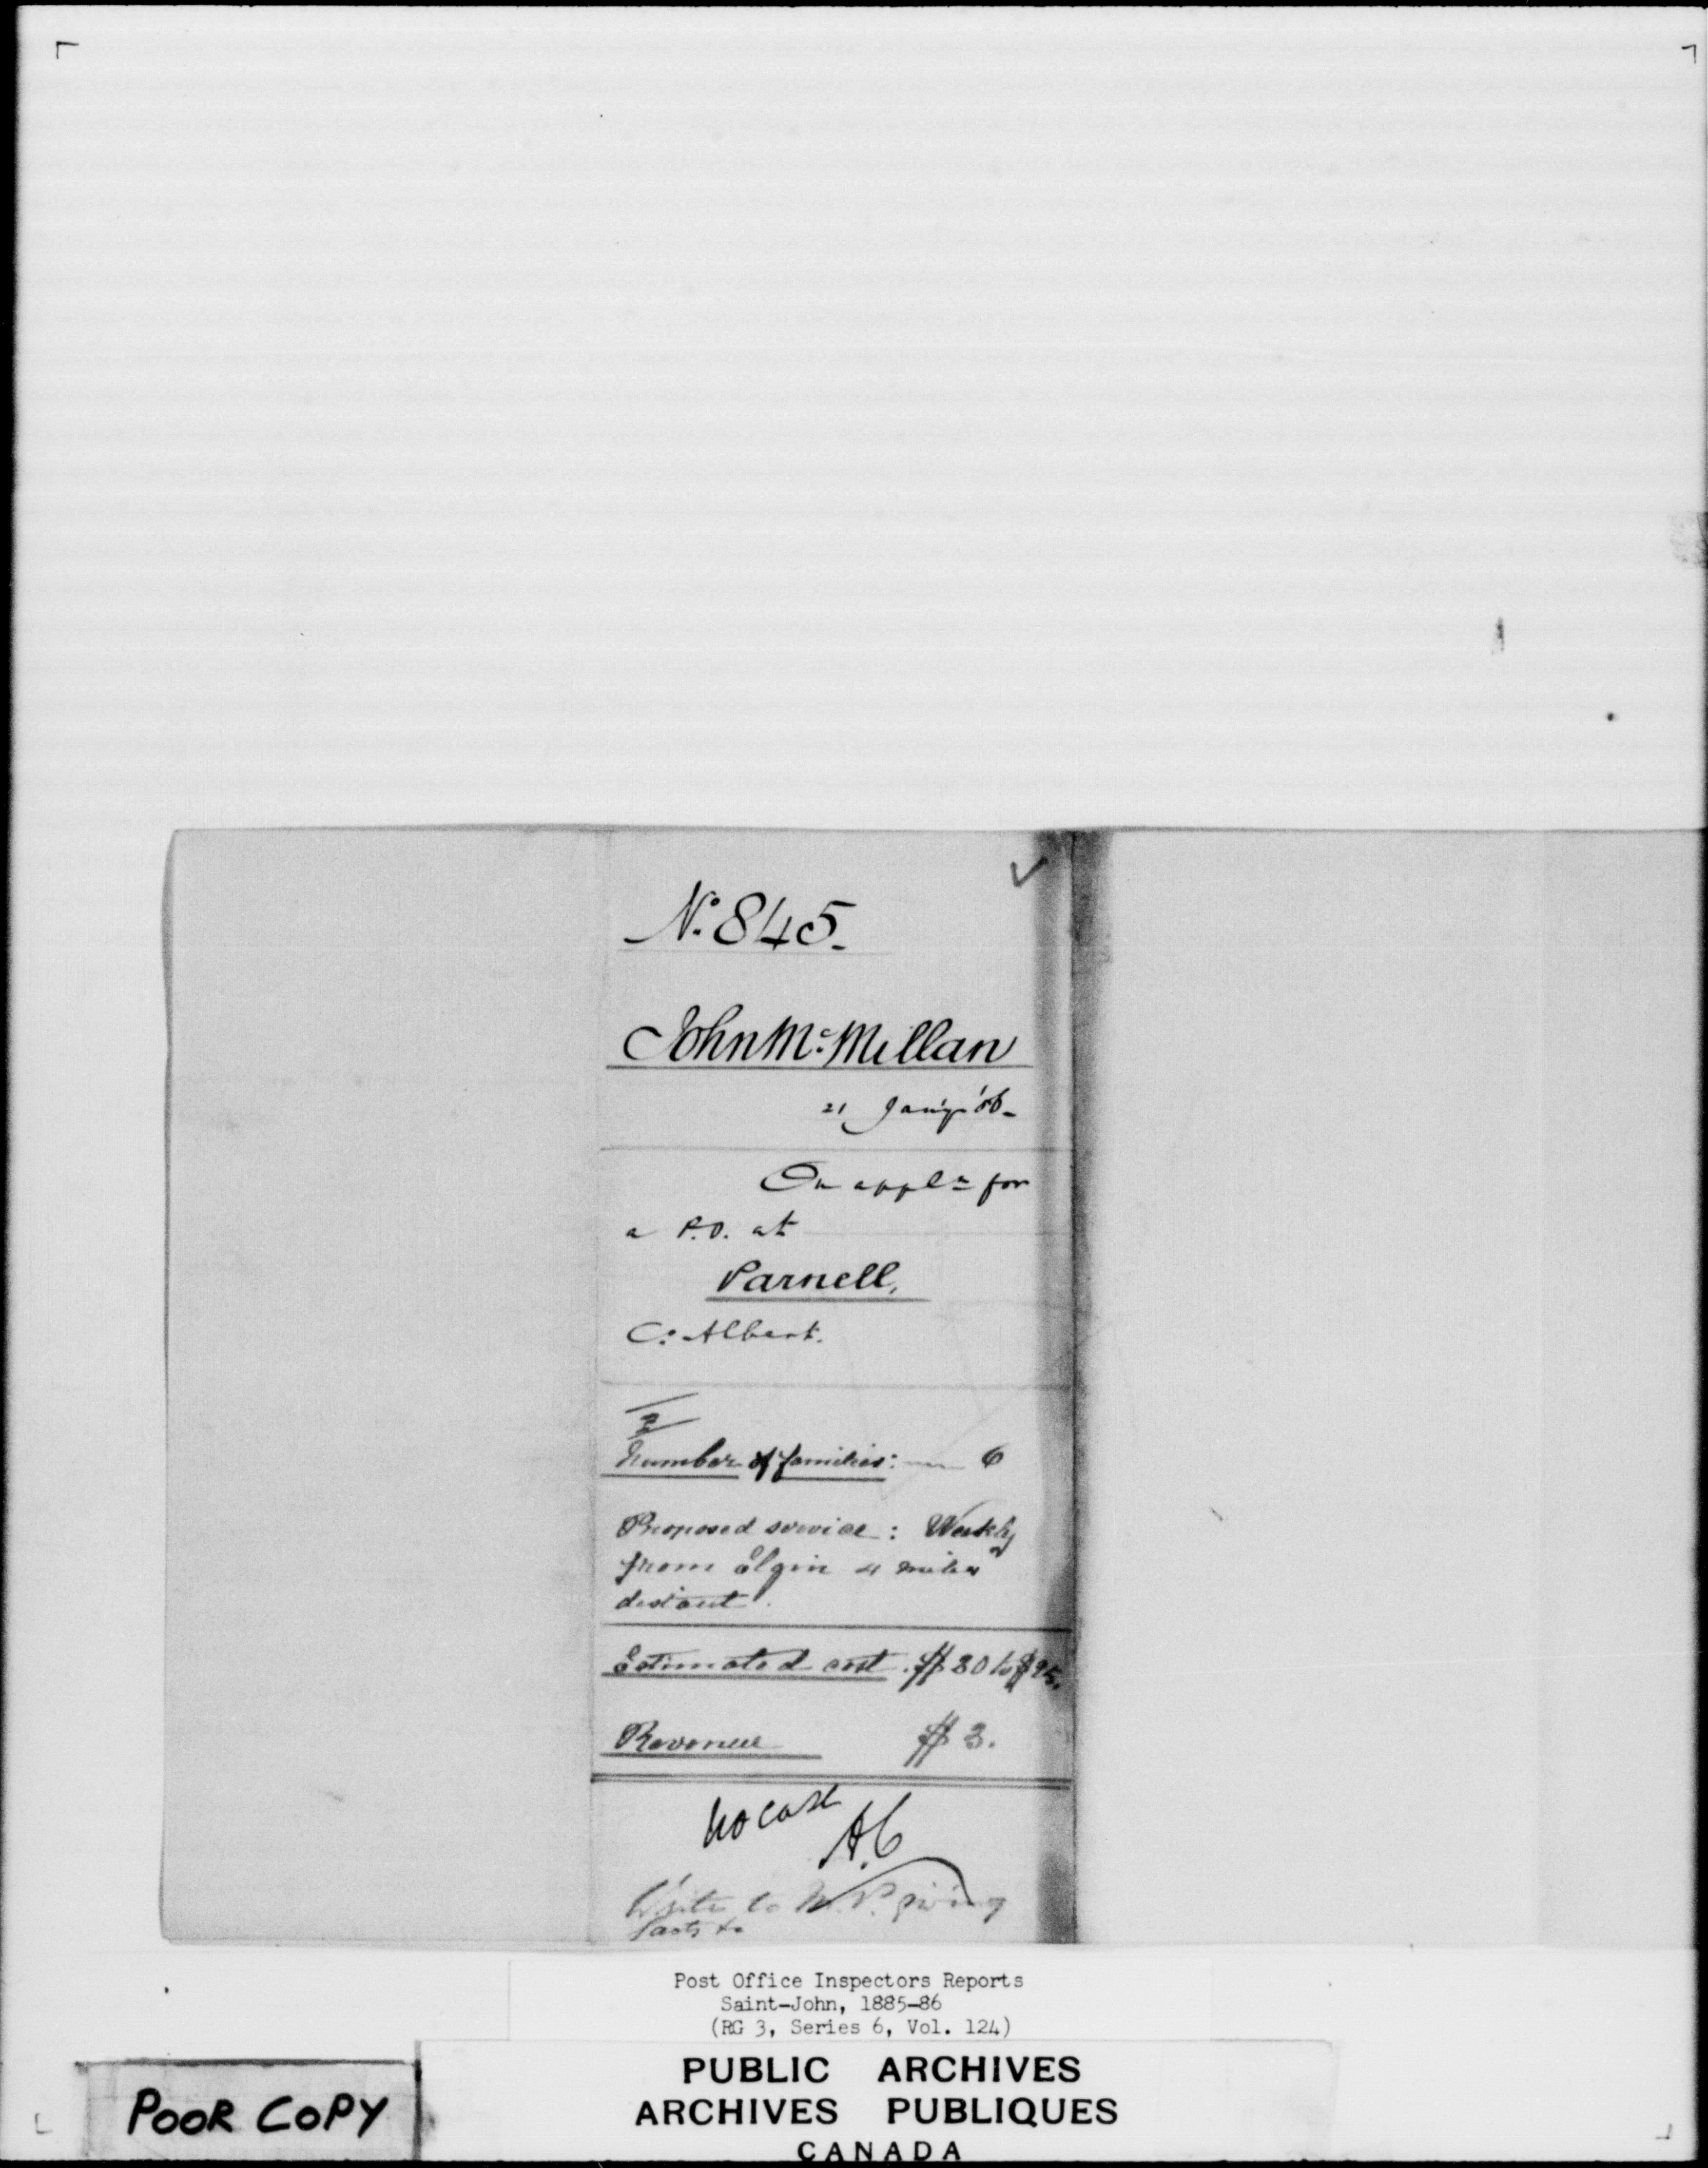 No. 845.
John McMillan
21 Jan'y '86
On appln for
a P.O. at
Parnell,
Co. Albert.
Number of families: 6
Proposed service: Weekly
from Elgin 4 miles
distant.
Estimated cost. $20 to $25.
Revenue $3.
No case
A.C
Write to M.P. giving
facts &c
Post Office Inspectors Reports
Saint-John, 1885-86
(RG 3, Series 6, Vol. 124)
PUBLIC ARCHIVES
ARCHIVES PUBLIQUES
CANADA
POOR COPY